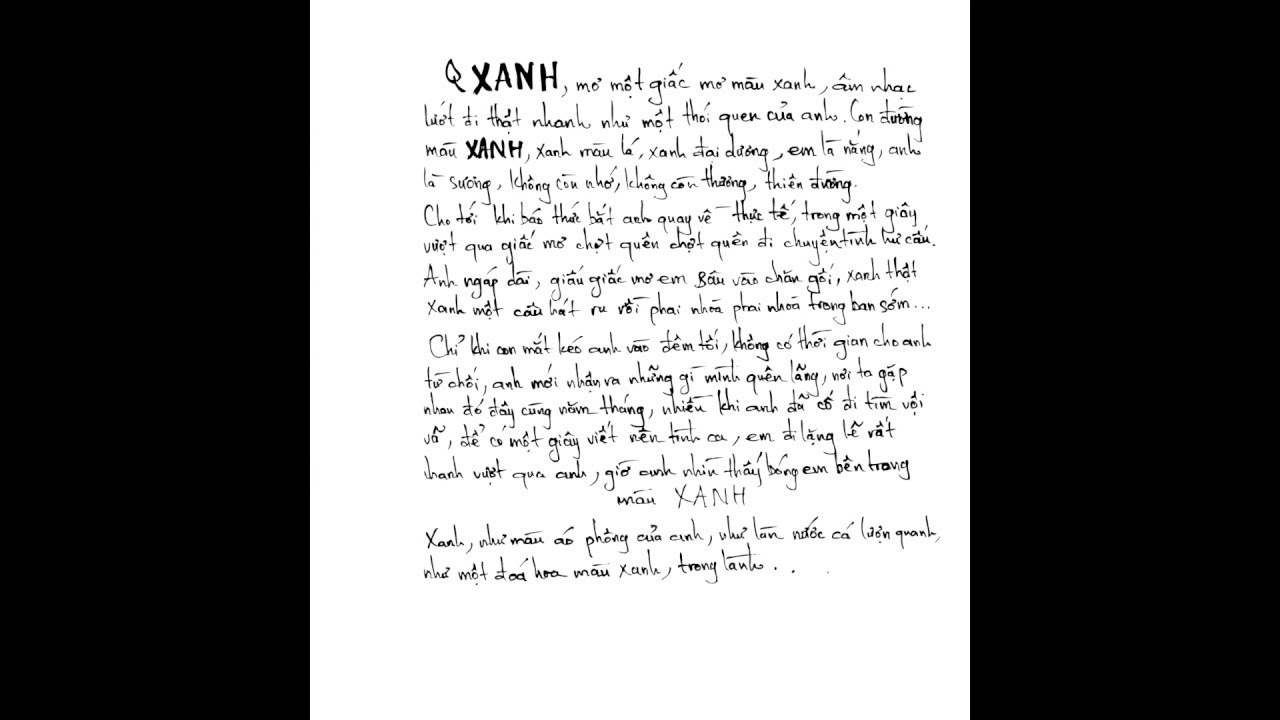 Q XANH, mơ một giấc mơ màu xanh, âm nhạc
lướt đi thật nhanh như một thói quen của anh. Con đường
màu XANH, xanh màu lá, xanh đại dương, em là nắng, anh
là sương, không còn nhớ, không còn thương, thiên đường.
Cho tới khi báo thức bắt anh quay về thực tế, trong một giây
vượt qua giấc mơ chợt quên chợt quên đi chuyện tình hư cấu.
Anh ngáp dài, giấu giấc mơ em sâu vào chăn gối, xanh thật
xanh một câu hát ru rồi phai nhoà phai nhoà trong ban sớm...
Chỉ khi con mắt kéo anh vào đêm tối, không có thời gian cho anh
từ chối, anh mới nhận ra những gì mình quên lãng, nơi ta gặp
nhau đó đây cùng năm tháng, nhiều khi anh đã cố đi tìm vội
vã, để có một giây viết nên tình ca, em đi lặng lẽ rất
nhanh vượt qua anh, giờ anh nhìn thấy bóng em bên trong
màu XANH
Xanh, như màu áo phông của anh, như làn nước cá lượn quanh,
như một đoá hoa màu xanh, trong lành...